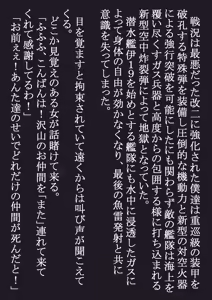 戦況は最悪だった改二に強化された僕達は重巡級の装甲を
破壊する特殊弾を装備し圧倒的な機動力と新型の対空火器
による強行突破を可能にしたにも関わらず敵の艦隊は海上を
覆い尽くすガス兵器と高度からの包囲する様に打ち込まれる
新型空中炸裂弾によって地獄となっていた。
潜水艦伊19を始めとする艦隊にも水中に浸透したガスに
よって身体の自由が効かなくなり、最後の魚雷発射と共に
意識を失ってしまった。
目を覚ますと拘束されていて遠くからは叫び声が聞こえて
くる。
どこか見覚えのある女が話賭けて来る。
「ふふふ、こんばんは！沢山のお仲間を「また」連れて来て
くれて感謝してるわ！」
「お前ぇ！あんた達のせいでどれだけの仲間が死んだと！」